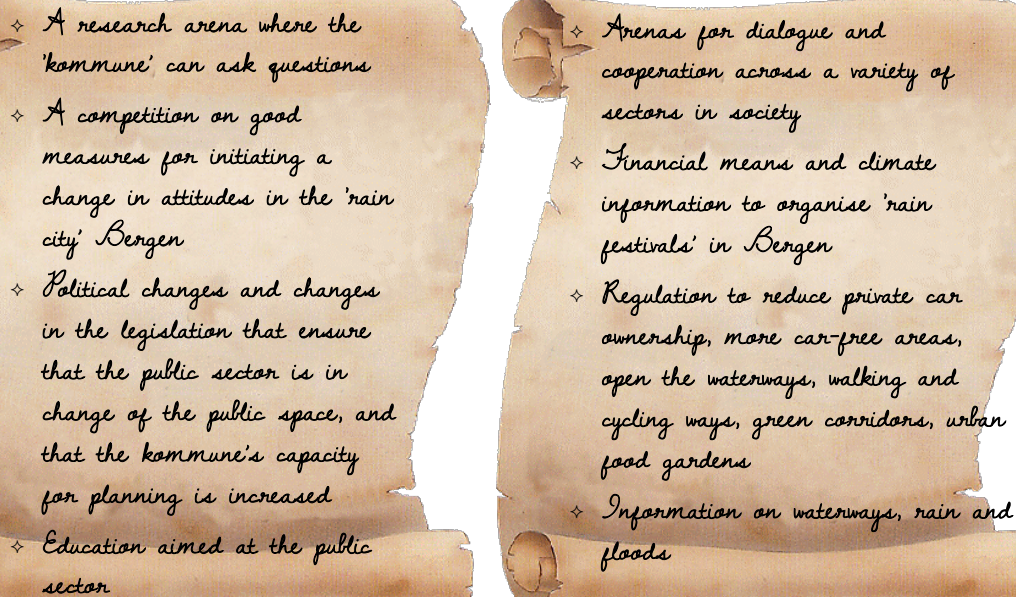 ✧ A research arena where the
'kommune' can ask questions
✧ A competition on good
measures for initiating a
change in attitudes in the 'rain
city' Bergen
✧ Political changes and changes
in the legislation that ensure
that the public sector is in
change of the public space, and
that the kommune's capacity
for planning is increased
✧ Education aimed at the public
sector
✧ Arenas for dialogue and
cooperation across a variety of
sectors in society
✧ Financial means and climate
information to organise 'rain
festivals' in Bergen
✧ Regulation to reduce private car
ownership, more car-free areas,
open the waterways, walking and
cycling ways, green corridors, urban
food gardens
✧ Information on waterways, rain and
floods